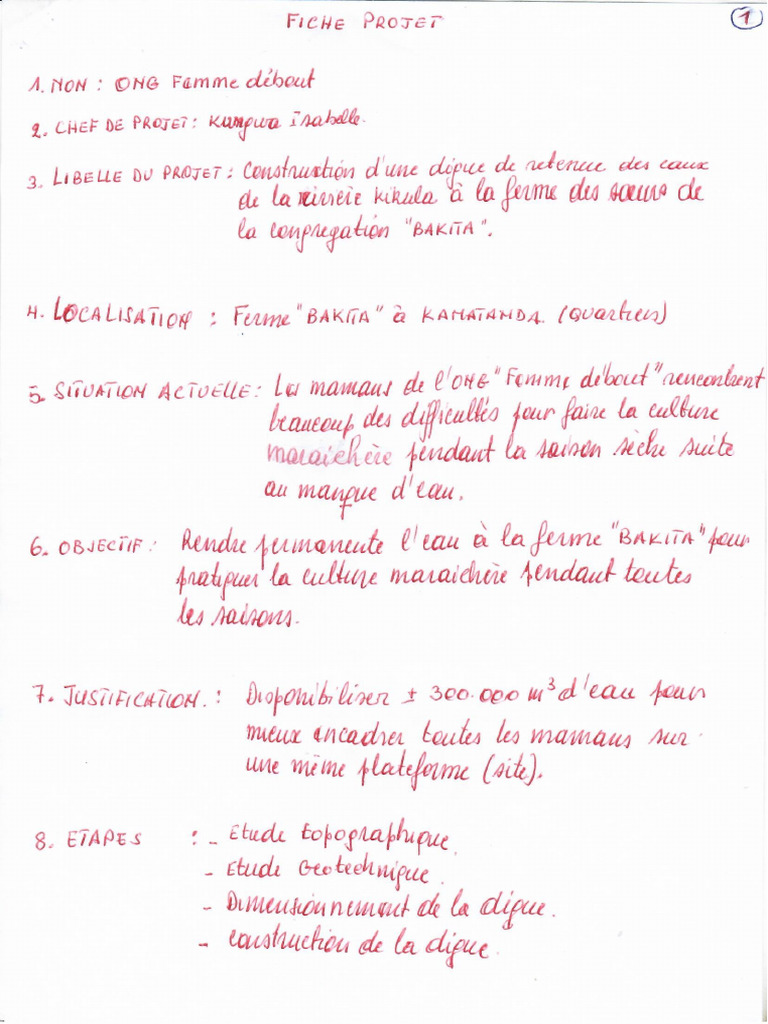 FICHE PROJET
1
1. NON : ONG Femme débout
2. CHEF DE PROJET : Kungwa Isabelle.
3. LIBELLE DU PROJET : Construction d'une digue de retenue des eaux
de la rivière Kikula à la ferme des sœurs de
la congregation "BAKITA".
4. LOCALISATION : Ferme "BAKITA" à KAMATANDA. (Quartiers)
5. SITUATION ACTUELLE : Les mamans de l'ONG "Femme débout" rencontrent
beaucoup des difficultés pour faire la culture
maraichère pendant la saison sèche suite
au manque d'eau.
6. OBJECTIF : Rendre permanente l'eau à la ferme "BAKITA" pour
pratiquer la culture maraichère pendant toutes
les saisons.
7. JUSTIFICATION. : Disponibiliser ± 300.000 m³ d'eau pour
mieux encadrer toutes les mamans sur
une même plateforme (site).
8. ETAPES : - Etude topographique.
- Etude Geotechnique.
- Dimensionnement de la digue.
- construction de la digue.